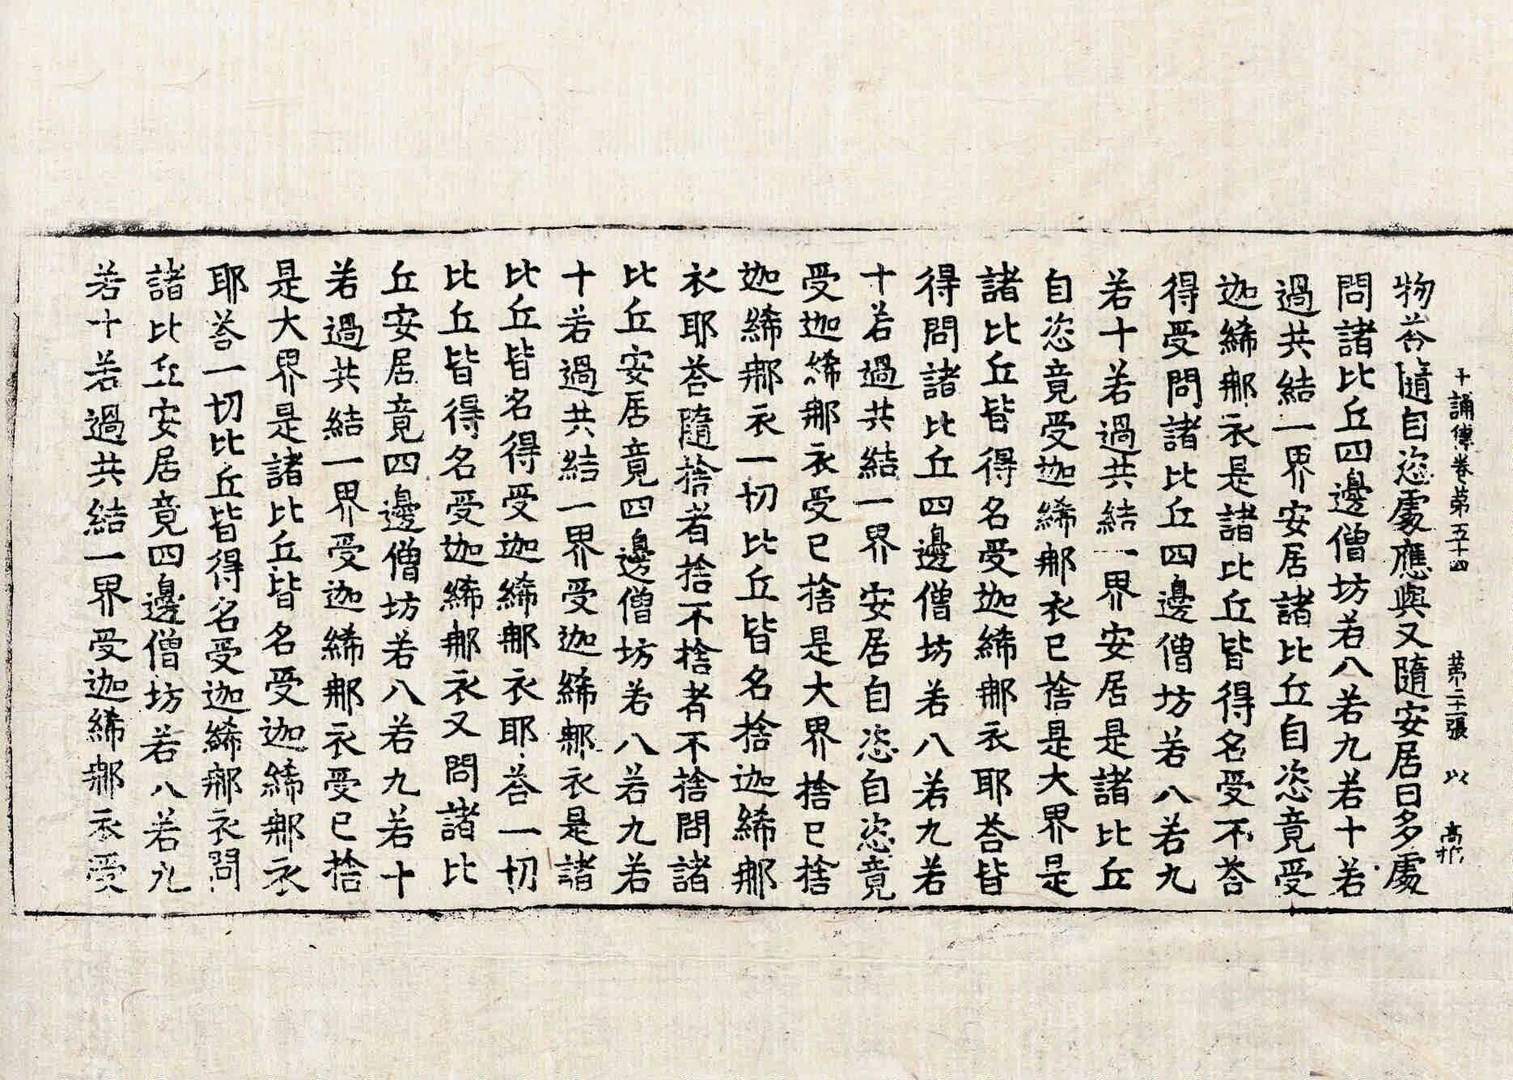 十誦律卷第五十四 第二十張 以
物荅隨自恣處應與又隨安居日多處
問諸比丘四邊僧坊若八若九若十若
過共結一界安居諸比丘自恣竟受
迦絺那衣是諸比丘皆得名受不荅
得受問諸比丘四邊僧坊若八若九
若十若過共結一界安居是諸比丘
自恣竟受迦絺那衣已捨是大界是
諸比丘皆得名受迦絺那衣耶荅皆
得問諸比丘四邊僧坊若八若九若
十若過共結一界安居自恣自恣竟
受迦絺那衣受已捨是大界捨已捨
迦絺那衣一切比丘皆名捨迦絺那
衣耶荅隨捨者捨不捨者不捨問諸
比丘安居竟四邊僧坊若八若九若
十若過共結一界受迦絺那衣是諸
比丘皆名得受迦絺那衣耶荅一切
比丘皆得名受迦絺那衣又問諸比
丘安居竟四邊僧坊若八若九若十
若過共結一界受迦絺那衣受已捨
是大界是諸比丘皆名受迦絺那衣
耶荅一切比丘皆得名受迦絺那衣問
諸比丘安居竟四邊僧坊若八若九
若十若過共結一界受迦絺那衣受